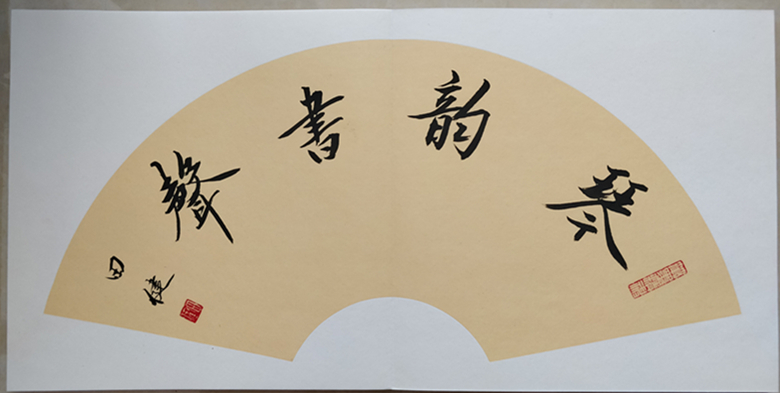 琴韵書聲
田健